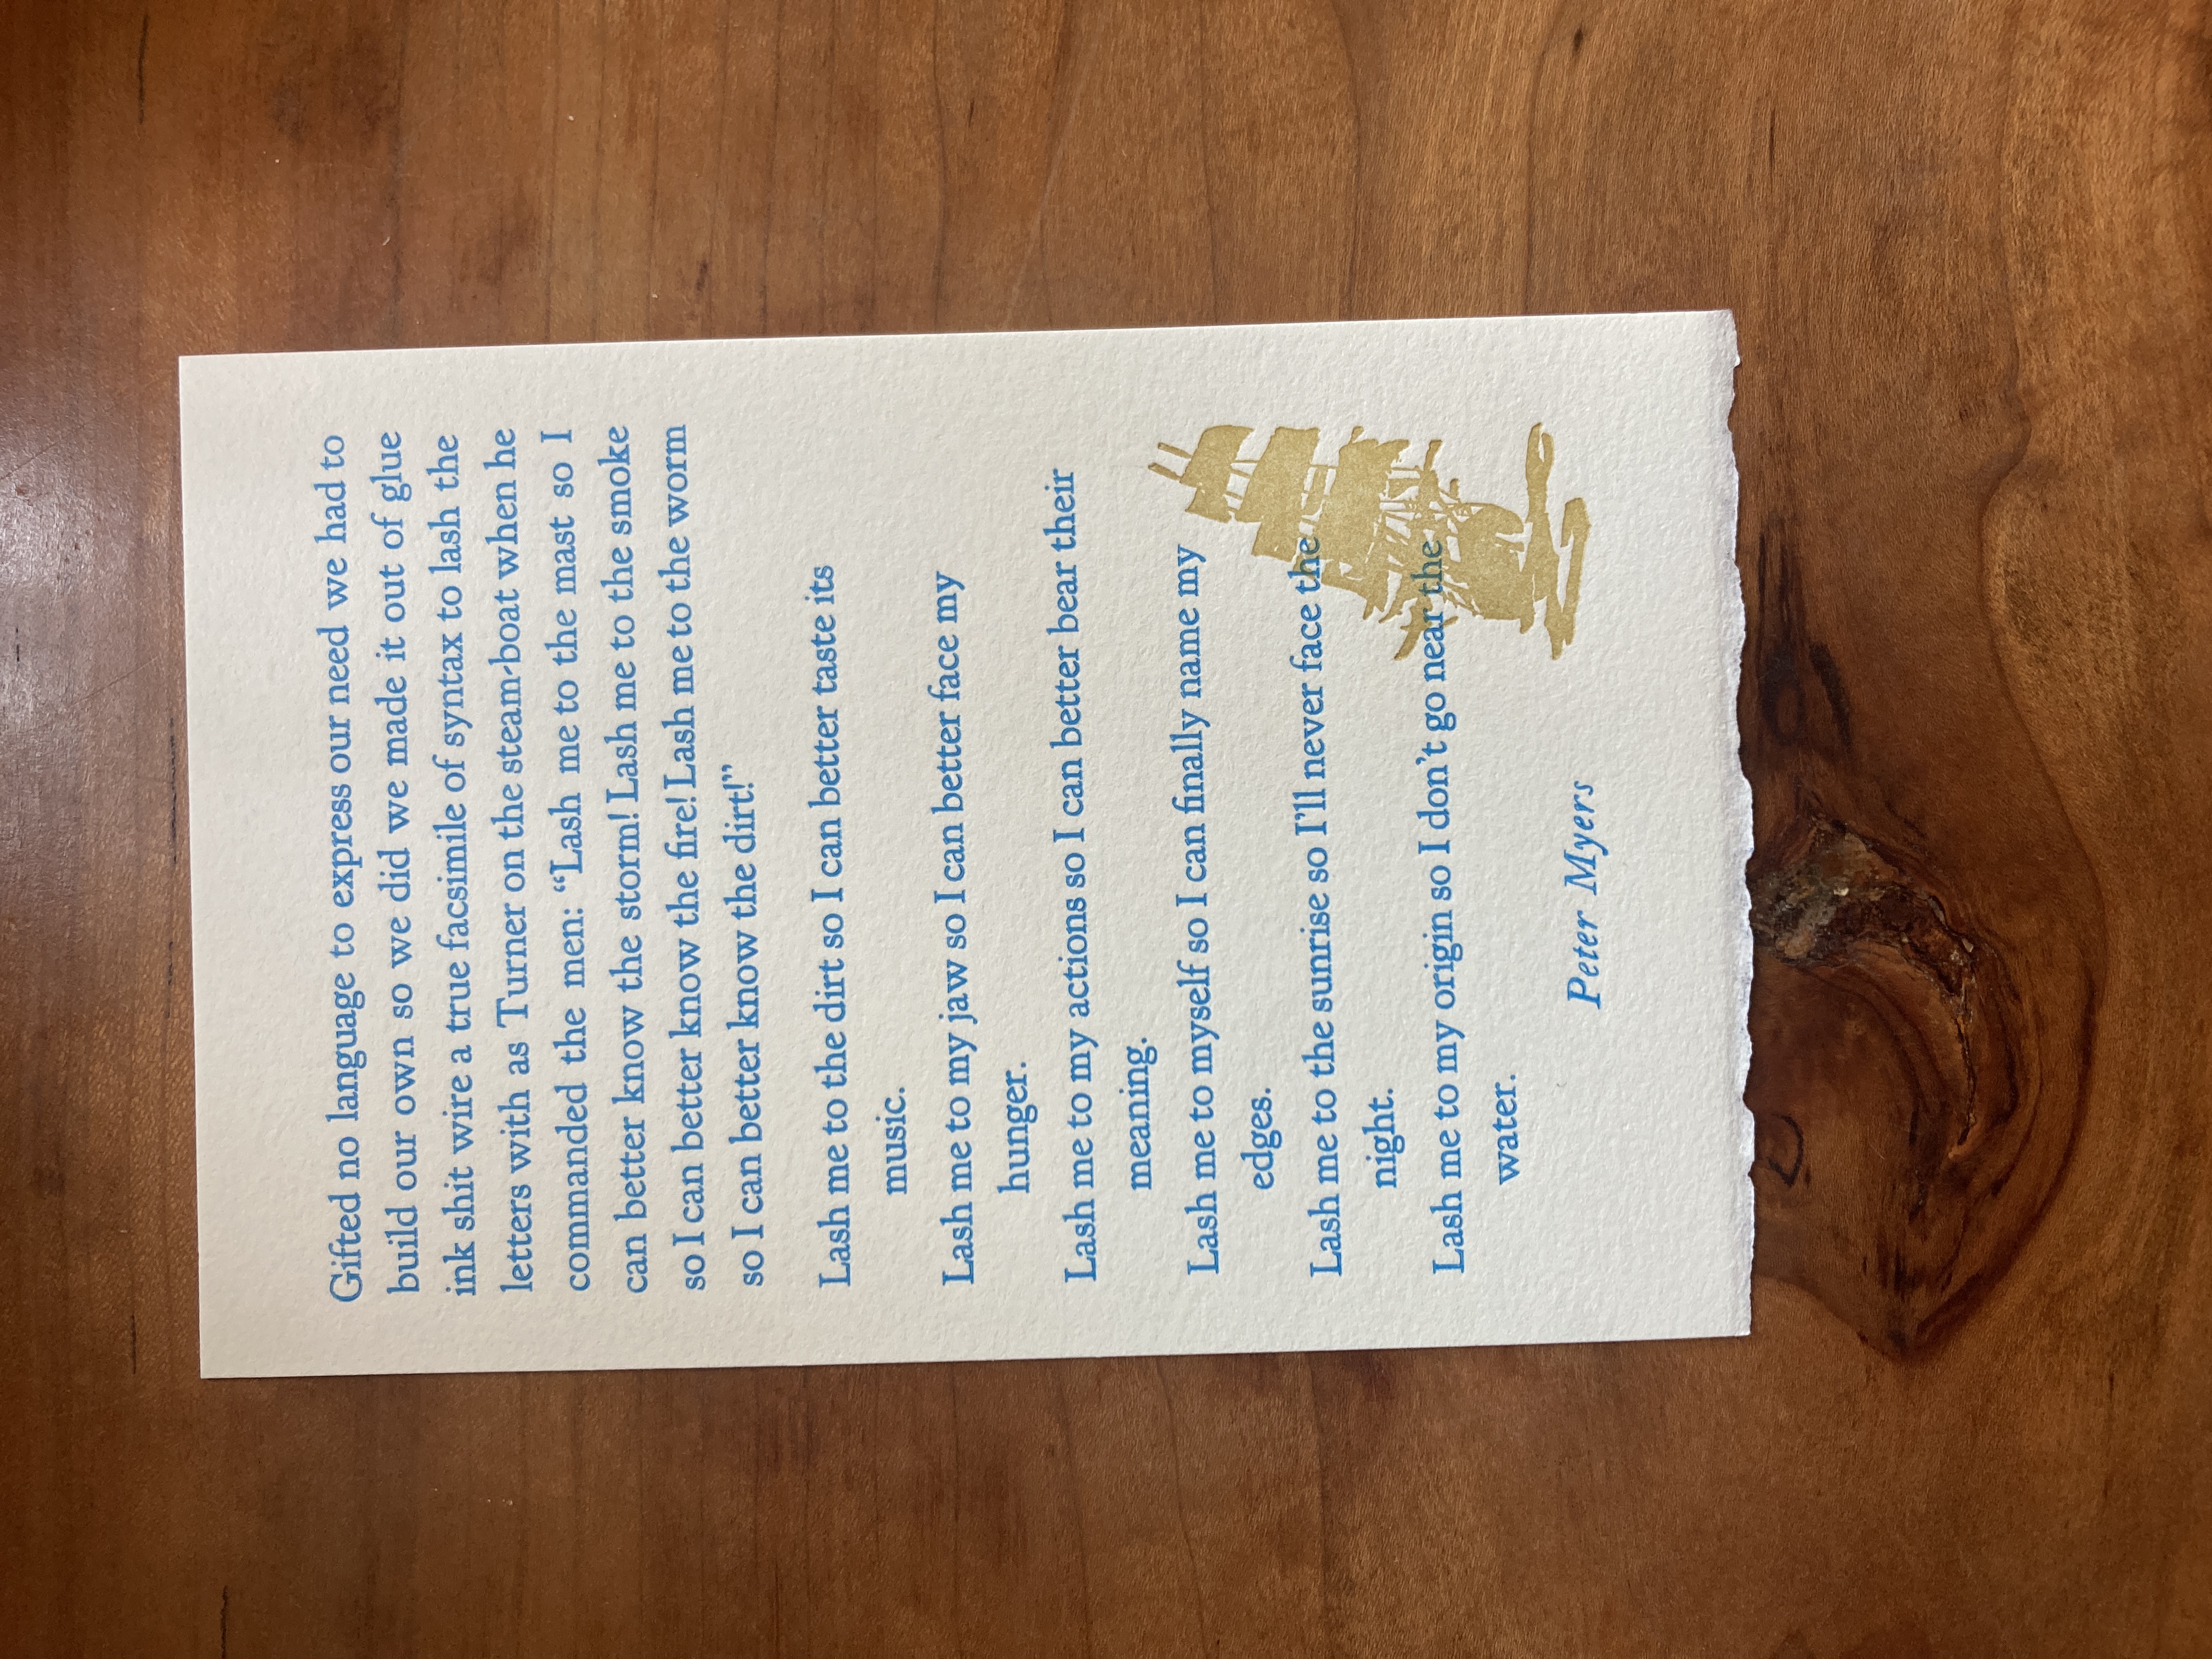 Gifted no language to express our need we had to
build our own so we did we made it out of glue
ink shit wire a true facsimile of syntax to lash the
letters with as Turner on the steam-boat when he
commanded the men: “Lash me to the mast so I
can better know the storm! Lash me to the smoke
so I can better know the fire! Lash me to the worm
so I can better know the dirt!”
Lash me to the dirt so I can better taste its
music.
Lash me to my jaw so I can better face my
hunger.
Lash me to my actions so I can better bear their
meaning.
Lash me to myself so I can finally name my
edges.
Lash me to the sunrise so I’ll never face the
night.
Lash me to my origin so I don’t go near the
water.
Peter Myers